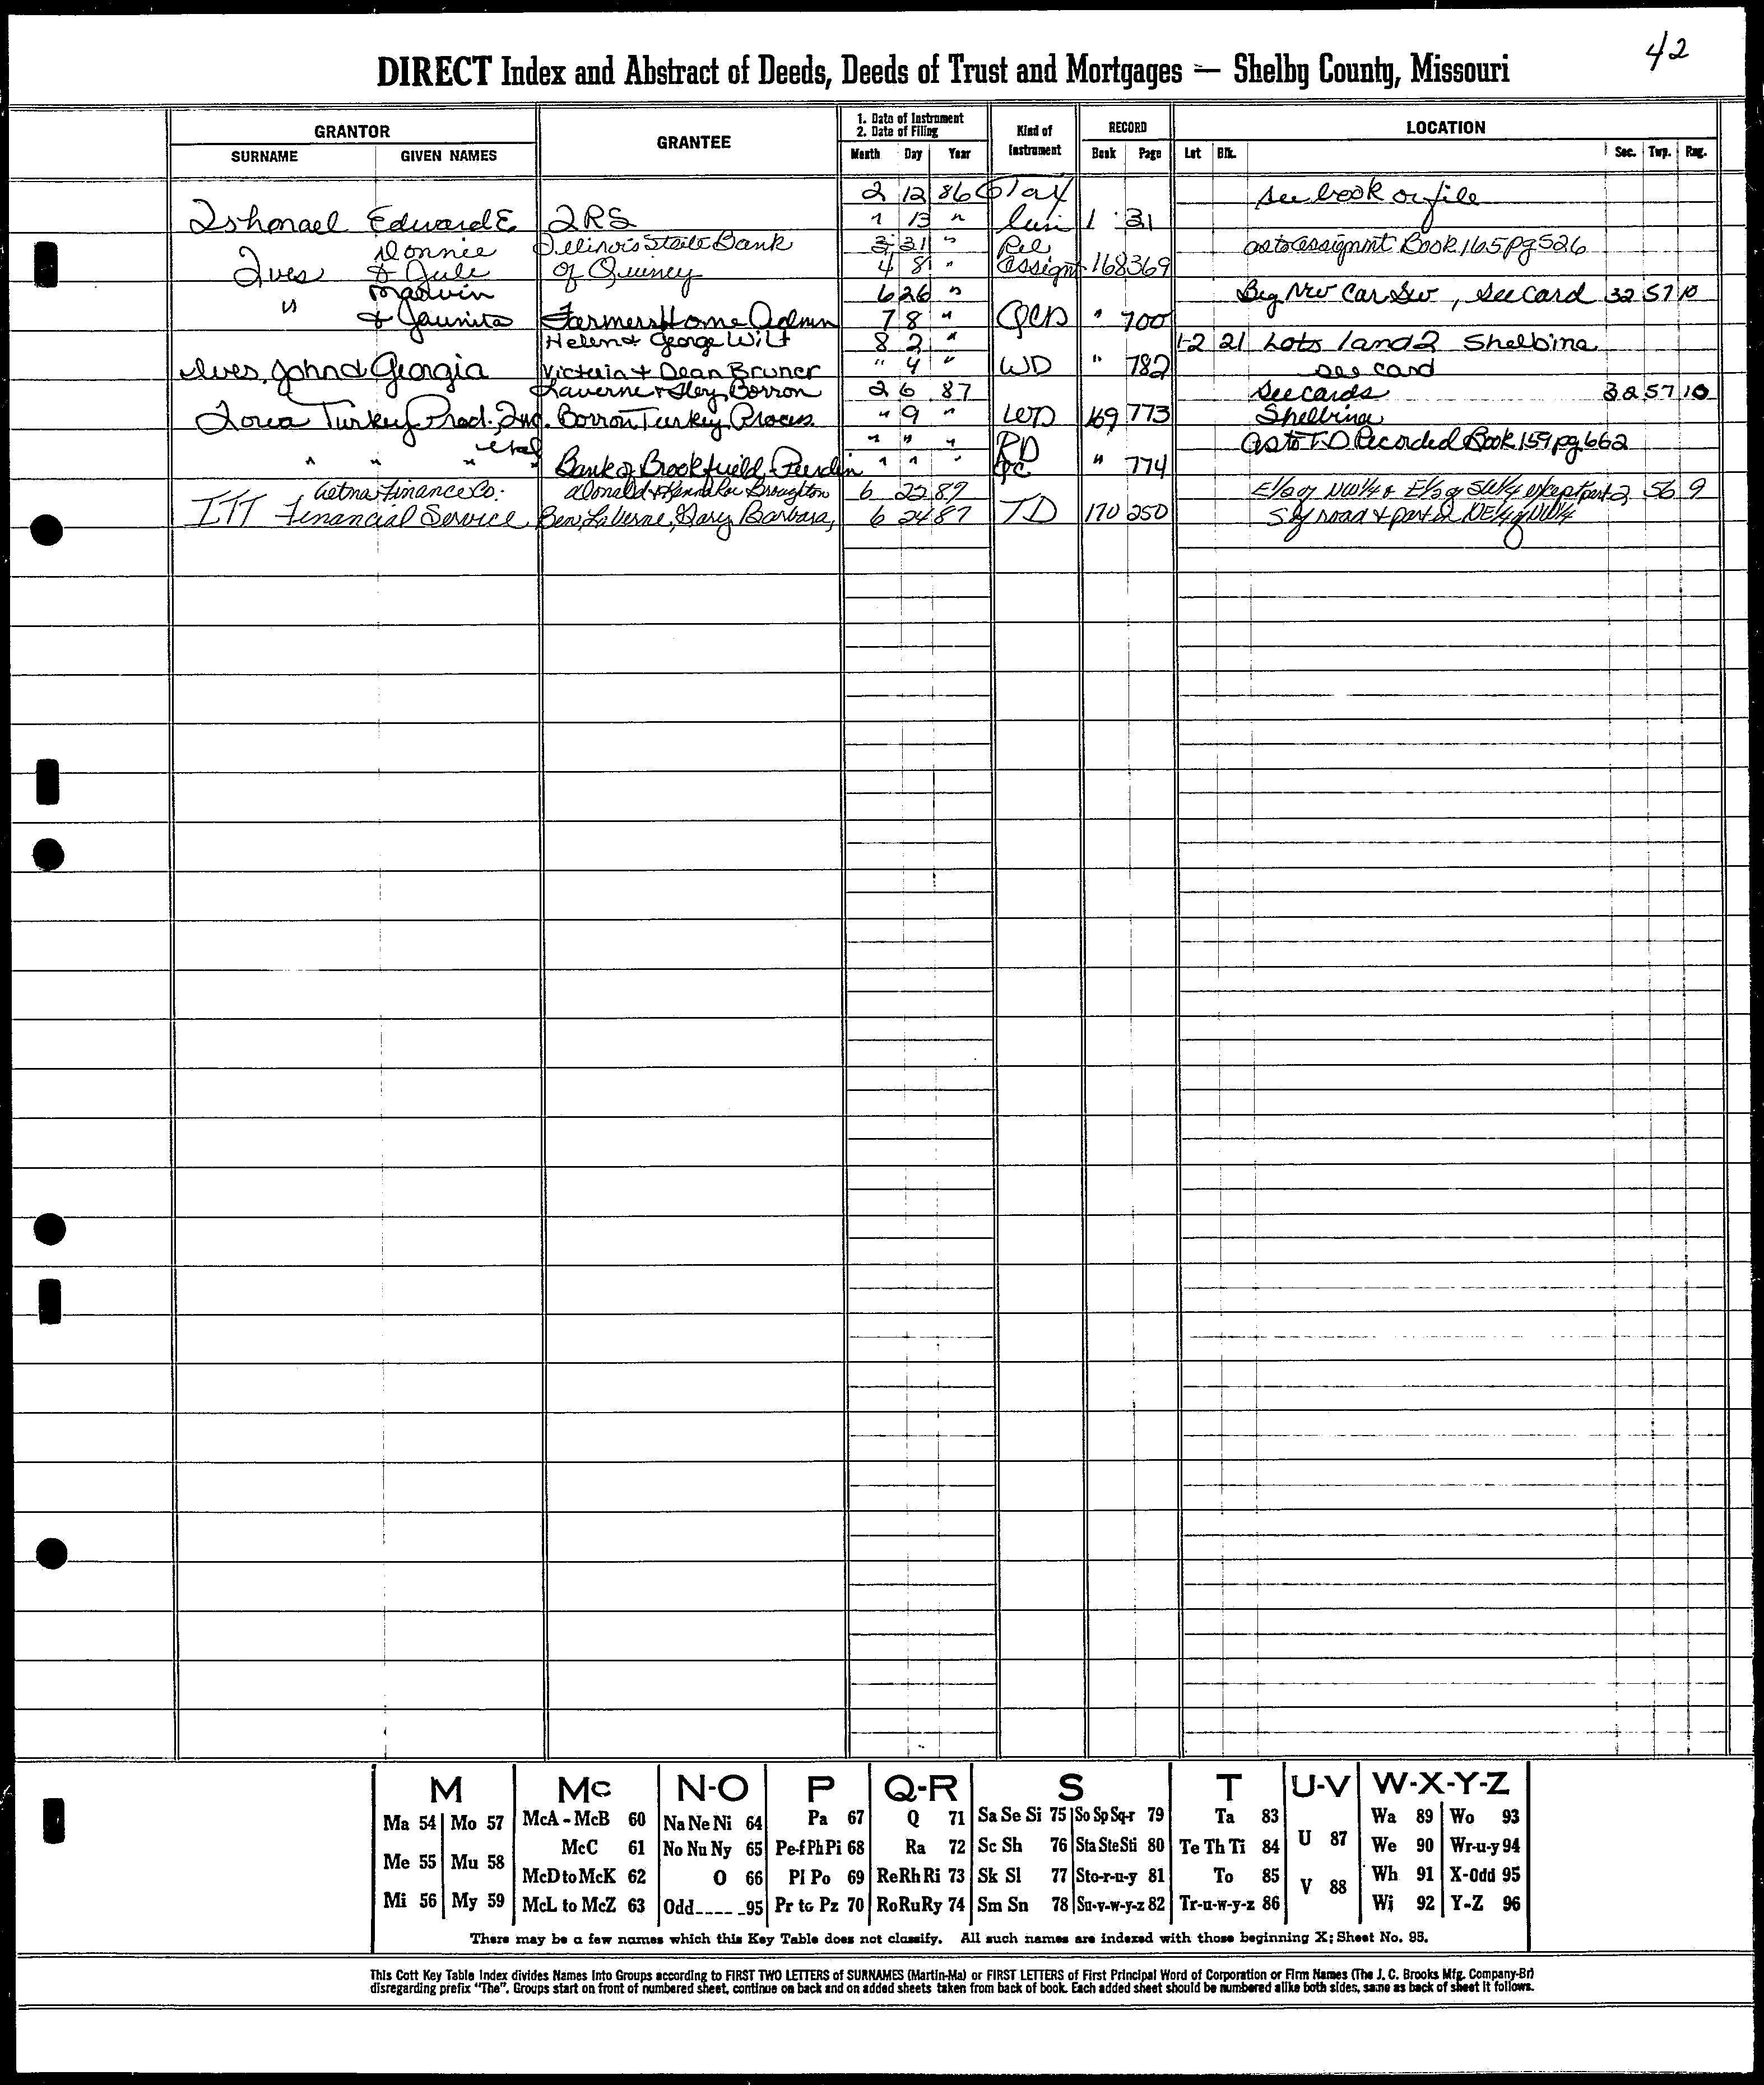 42
DIRECT Index and Abstract of Deeds, Deeds of Trust and Mortgages — Shelby County, Missouri
GRANTOR GRANTEE 1. Date of Instrument 2. Date of Filing Kind of Instrument RECORD LOCATION
SURNAME GIVEN NAMES Month Day Year Book Page Lot Blk. Sec. Twp. Rng.
2 12 86 Tax See book or file
Ishmael Edward E. IRS " 13 " Lien 1 31
Donnie Illinois State Bank 3 31 " Rel as to assignmt Book 165 pg 526
Ives & Jule of Quincy 4 8 " assignt 168 369
Marvin 6 26 " Beg NW Cor SW, see card 32 57 10
" & Jaunita Farmers Home Admn 7 8 " QCD " 700
Helen & George Wilt 8 2 " 1-2 21 Lots 1 and 2 Shelbina
Ives, John & Georgia Victoria & Dean Bruner " 4 " WD " 782 see card
Laverne & Borron 2 6 87 See cards 32 57 10
Iowa Turkey Prod., Inc. Borron Turkey Process " 9 " WD 169 773 Shelbina
etal " " " RD as to T-D Recorded Book 159 pg 662
" " " " Bank of Brookfield-Purdin " " " " 774
Aetna Finance Co. Donald & Broughton 6 22 87 E1/2 of NW1/4 & E1/2 of SW1/4 except part 2 56 9
ITT Financial Service Ben, LaVerne, Gary Barbara, 6 24 87 TD 170 250 S of road & part of NE1/4 of NW1/4
M Mc N-O P Q-R S T U-V W-X-Y-Z
Ma 54 Mo 57 McA - McB 60 Na Ne Ni 64 Pa 67 Q 71 Sa Se Si 75 So Sp Sq-r 79 Ta 83 U 87 Wa 89 Wo 93
Me 55 Mu 58 McC 61 No Nu Ny 65 Pe-f Ph Pi 68 Ra 72 Sc Sh 76 Sta Ste Sti 80 Te Th Ti 84 V 88 We 90 Wr-u-y 94
McD to McK 62 O 66 Pl Po 69 Re Rh Ri 73 Sk Sl 77 Sto-r-u-y 81 To 85 Wh 91 X-Odd 95
Mi 56 My 59 McL to McZ 63 Odd---- -95 Pr to Pz 70 Ro Ru Ry 74 Sm Sn 78 Su-v-w-y-z 82 Tr-u-w-y-z 86 Wi 92 Y-Z 96
There may be a few names which this Key Table does not classify. All such names are indexed with those beginning X; Sheet No. 95.
This Cott Key Table Index divides Names into Groups according to FIRST TWO LETTERS of SURNAMES (Martin-Ma) or FIRST LETTERS of First Principal Word of Corporation or Firm Names (The J. C. Brooks Mfg. Company-Br)
disregarding prefix "The". Groups start on front of numbered sheet, continue on back and on added sheets taken from back of book. Each added sheet should be numbered alike both sides, same as back of sheet it follows.